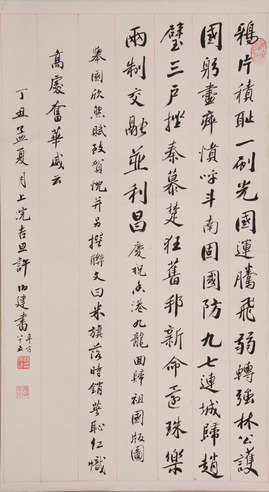 鴉片積恥一刷光國運騰飛弱轉強林公護
國躬盡瘁憤呼斗南固國防九七連城歸趙
璧三戶摧秦慕楚狂舊邦新命還珠樂
兩制交融並利昌慶祝香港九龍回歸祖國版圖
舉國欣然賦致賀忱并另撰聯文曰米旗落時銷辱恥紅幟
高處奮華威云
丁丑孟夏月上浣吉旦許 建書年方八十五